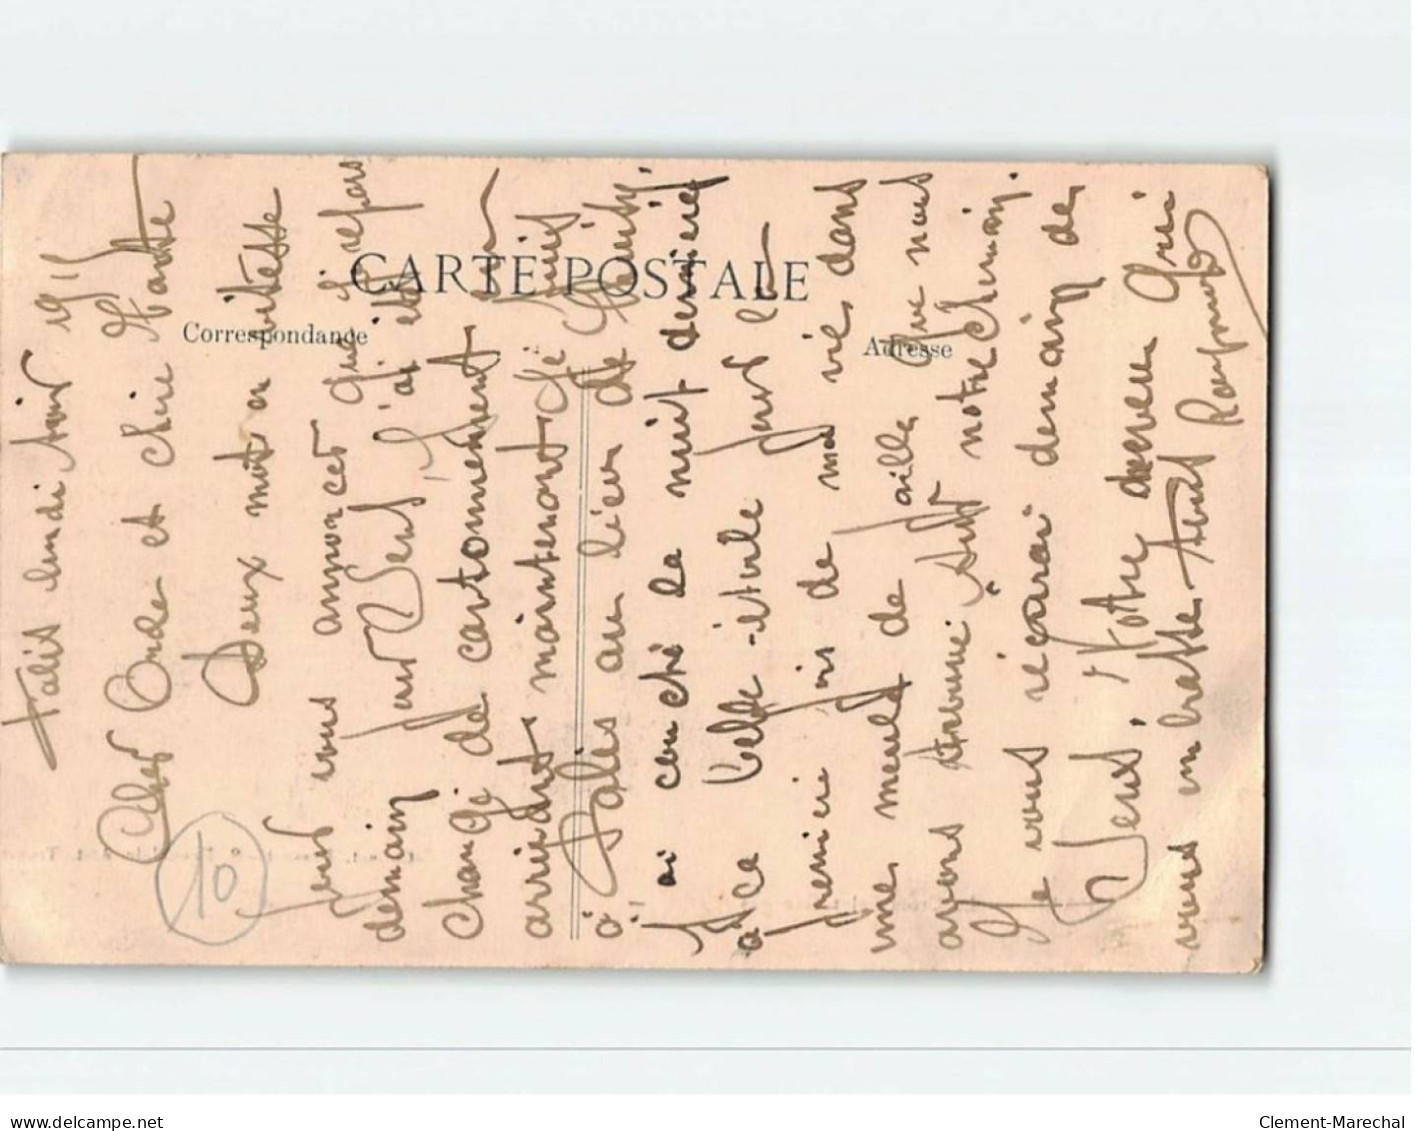 CARTE POSTALE
Correspondance
Adresse
Palis lundi soir 1915
Cher Oncle et chère Tante
Deux mots en vitesse
pour vous annoncer que je repars
demain pour Sens, j'ai été
changé de cantonnement en
arrivant maintenant je suis
à Palis au lieu de
J'ai couché la nuit dernière
à ce pour la
première fois de ma vie dans
une meule de paille que nous
avons trouvée sur notre chemin.
Je vous récrirai demain de
Sens, Votre neveu qui
vous embrasse tous Raymond
10
Clement-Marechal